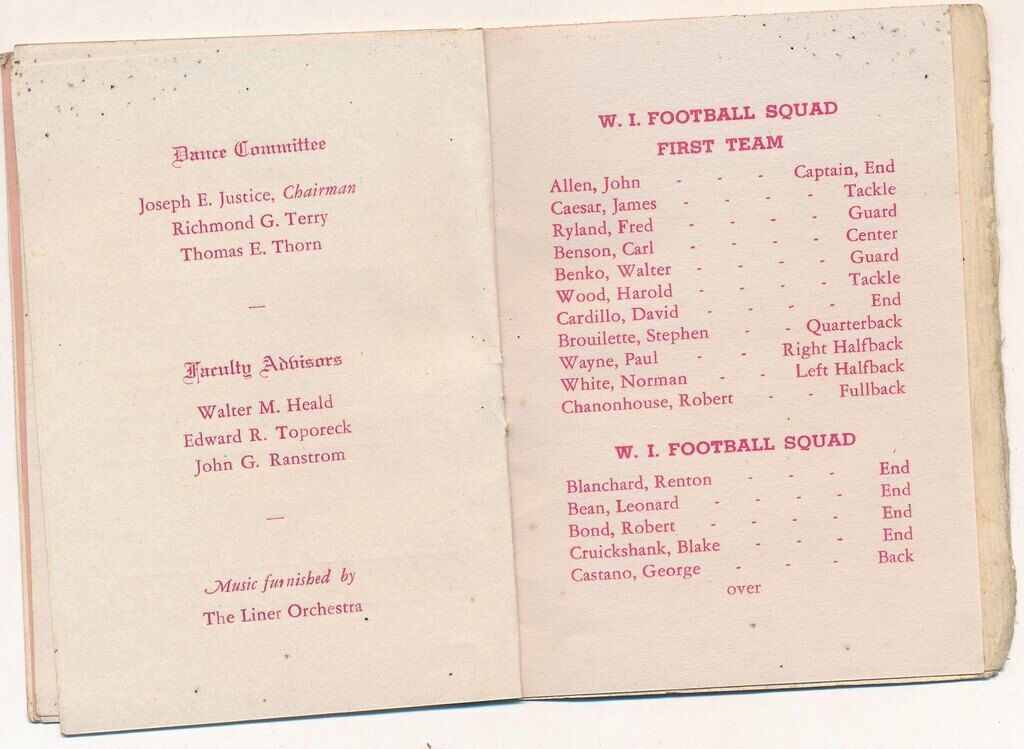 Dance Committee
Joseph E. Justice, Chairman
Richmond G. Terry
Thomas E. Thorn
—
Faculty Advisors
Walter M. Heald
Edward R. Toporeck
John G. Ranstrom
—
Music furnished by
The Liner Orchestra
W. I. FOOTBALL SQUAD
FIRST TEAM
Allen, John - - - Captain, End
Caesar, James - - - - Tackle
Ryland, Fred - - - - Guard
Benson, Carl - - - - Center
Benko, Walter - - - - Guard
Wood, Harold - - - - Tackle
Cardillo, David - - - - End
Brouilette, Stephen - - Quarterback
Wayne, Paul - - Right Halfback
White, Norman - - Left Halfback
Chanonhouse, Robert - - Fullback
W. I. FOOTBALL SQUAD
Blanchard, Renton - - - End
Bean, Leonard - - - - End
Bond, Robert - - - - End
Cruickshank, Blake - - - End
Castano, George - - - Back
over